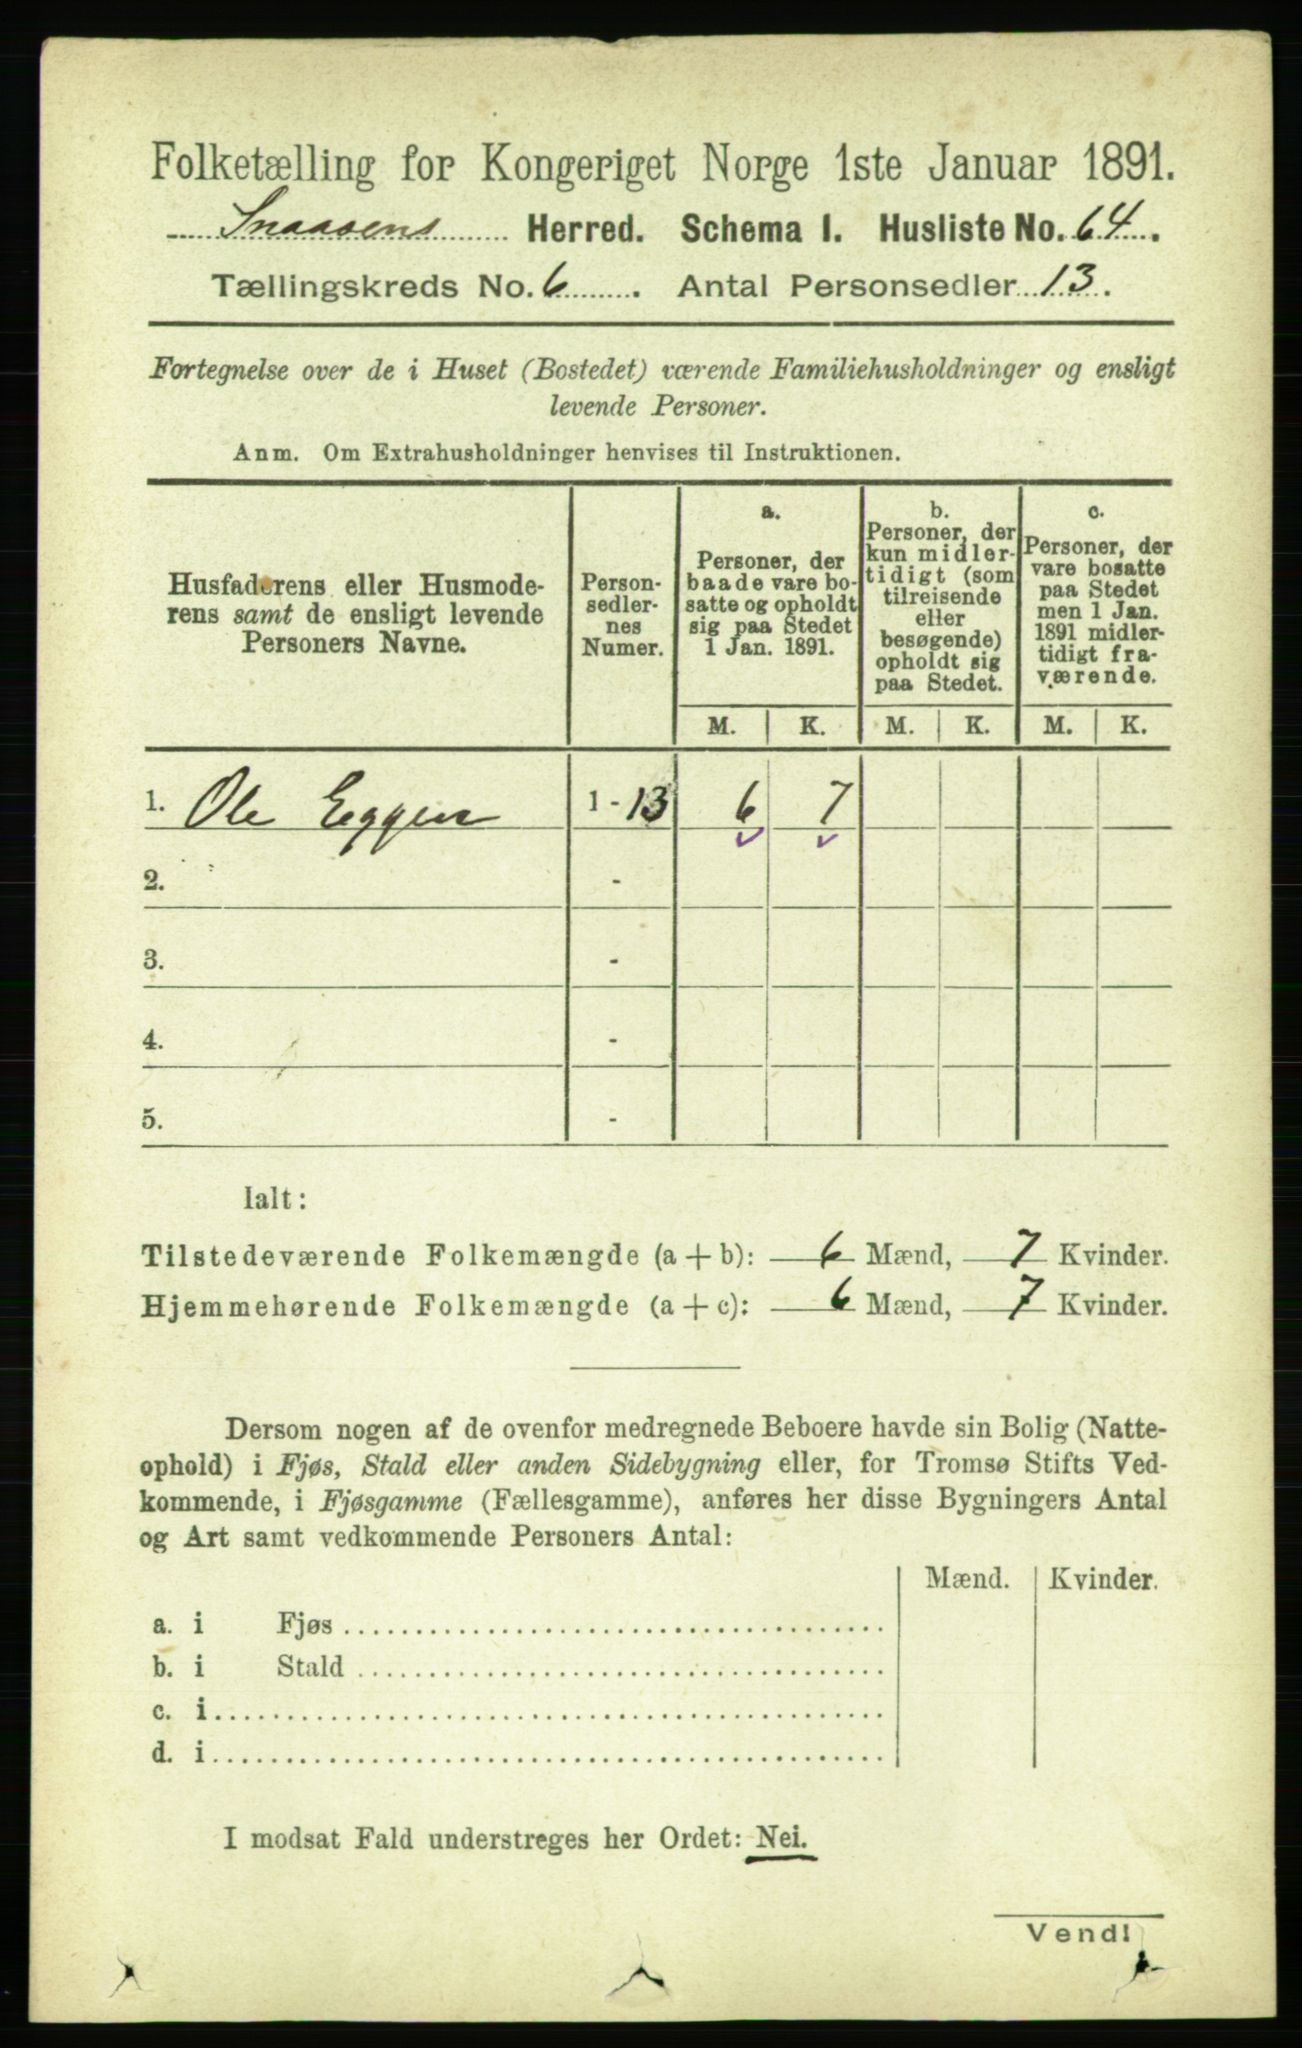 Folketælling for Kongeriget Norge 1ste Januar 1891.
Snaasens Herred. Schema I. Husliste No. 64.
Tællingskreds No. 6. Antal Personsedler 13.
Fortegnelse over de i Huset (Bostedet) værende Familiehusholdninger og ensligt
levende Personer.
Anm. Om Extrahusholdninger henvises til Instruktionen.
Husfaderens eller Husmode-
rens samt de ensligt levende
Personers Navne.
Person-
sedler-
nes
Numer.
a.
Personer, der
baade vare bo-
satte og opholdt
sig paa Stedet
1 Jan. 1891.
b.
Personer, der
kun midler-
tidigt (som
tilreisende
eller
besøgende)
opholdt sig
paa Stedet.
c.
Personer, der
vare bosatte
paa Stedet
men 1 Jan.
1891 midler-
tidigt fra-
værende.
M. K. M. K. M. K.
1. Ole Eggen 1 - 13 6 7
2. -
3. -
4. -
5. -
Ialt:
Tilstedeværende Folkemængde (a + b): 6 Mænd, 7 Kvinder.
Hjemmehørende Folkemængde (a + c): 6 Mænd, 7 Kvinder.
Dersom nogen af de ovenfor medregnede Beboere havde sin Bolig (Natte-
ophold) i Fjøs, Stald eller anden Sidebygning eller, for Tromsø Stifts Ved-
kommende, i Fjøsgamme (Fællesgamme), anføres her disse Bygningers Antal
og Art samt vedkommende Personers Antal:
Mænd. Kvinder.
a. i Fjøs
b. i Stald
c. i
d. i
I modsat Fald understreges her Ordet: Nei.
Vend!